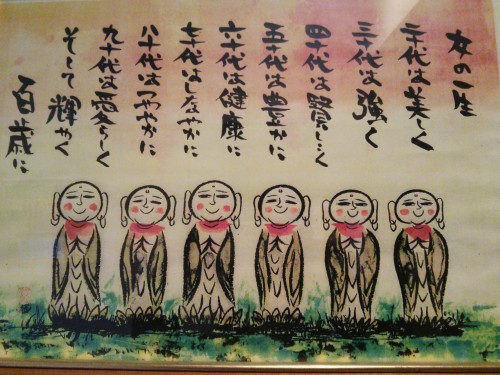 女の一生
二十代は美しく
三十代は強く
四十代は賢しこく
五十代は豊かに
六十代は健康に
七十代はしなやかに
八十代はつややかに
九十代は愛らしく
そして輝やく
百歳に